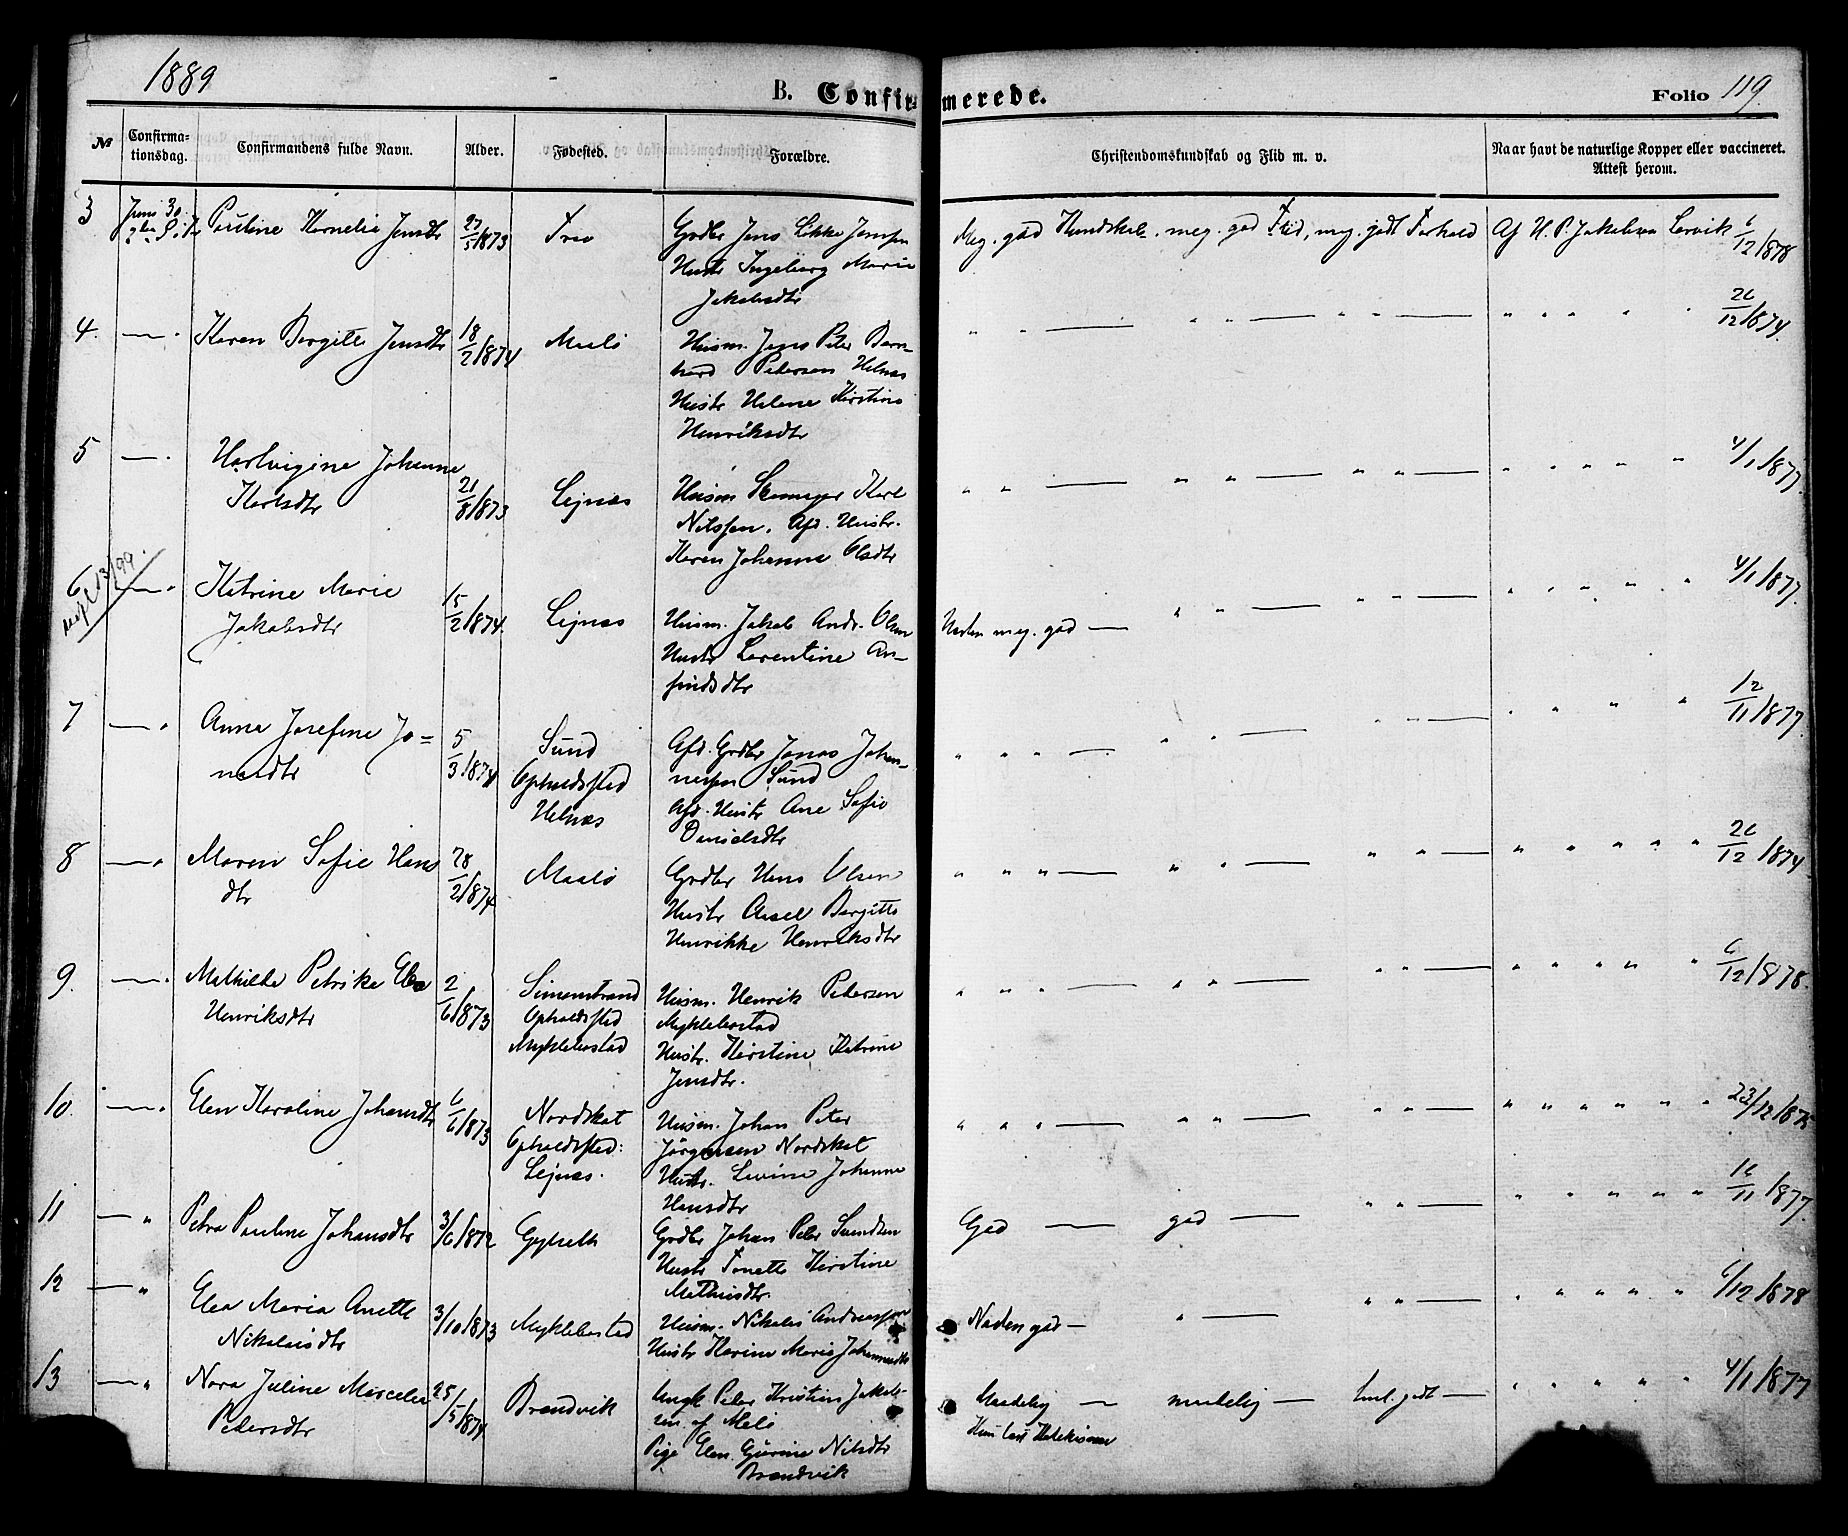 1889
B. Confirmerede.
Folio 119.
№
Confirma-
tionsdag.
Confirmandens fulde Navn.
Alder.
Fødested.
Forældre.
Christendomskundskab og Flid m. v.
Naar havt de naturlige Kopper eller vaccineret.
Attest herom.
3
Juni 30
Pauline Kornelia Jensdtr
27/5 1873
Grdbr Jens Likke Jensen
Hustr Ingeborg Marie
Jakobsdtr
Meg. god Kundskab. meg. god Flid, meg. godt Forhold
Af H. P. Jakobsen Lervik 6/12 1878
4.
Karen Bergitte Jensdtr
18/2 1874
Maalø
Husm. Jens Peter Bern-
hard Pedersen Helnes
Hustr Helene Kirstine
Henriksdtr
5
Hartvigine Johanne
Karlsdtr
21/8 1873
Lejnæs
Husm Skomager Karl
Nilssen. Afd. Hustr.
Karen Johanna Olsdtr
4/1 1877.
6
Katrine Marie
Jakobsdtr
15/2 1874.
Lejnæs
Husm. Jakob Andr. Olsen
Hustr Lorentine An-
findsdtr
Næsten meg. god
4/1 1877.
7
Anna Josefine Jo-
nasdtr
5/3 1874
Sund
Opholdssted
Helnæs
Afd. Grdbr Jonas Johan-
nessen Sund
Afd. Hustr Ane Sofie
Danielsdtr
12/11 1877.
8
Maren Sofie Hans
dtr
28/2 1874
Maalø
Grdbr Hans Olsen
Hustr Aasel Bergitte
Henrikke Henriksdtr
26/12 1874.
9.
Mathilde Petrike Elea
Henriksdtr
2/6 1873
Simenstrand
Opholdssted
Myklebostad
Husm. Henrik Pedersen
Myklebostad
Hustr. Kirstine Katrine
Jensdtr.
6/12 1878.
10.
Elen Karoline Johansdtr
6/6 1873
Nordskot
Opholdssted:
Lejnæs.
Husm. Johan Peter
Jørgensen Nordskot
Hustr. Lovine Johanna
Hansdtr
11
Petra Pauline Johansdtr
3/6 1872
Grdbr Johan Peter Sundsen
Hustr Tonette Kirstine
Mathisdtr.
God
god
16/11 1877.
12
Elea Maria Anette
Nikolaisdtr
3/10 1873
Myklebostad
Husm. Nikolai Andreassen
Hustr Karine Marie Johannesdtr
6/12 1878
13
Nora Juline Marcelia
Pedersdtr
25/5 1874
Brandvik
Ungk Peter Kristian Jakob-
sen af Melø
Pige Elen Gjurine Nilsdtr
Brandvik
Maadelig
maadelig
4/1 1877